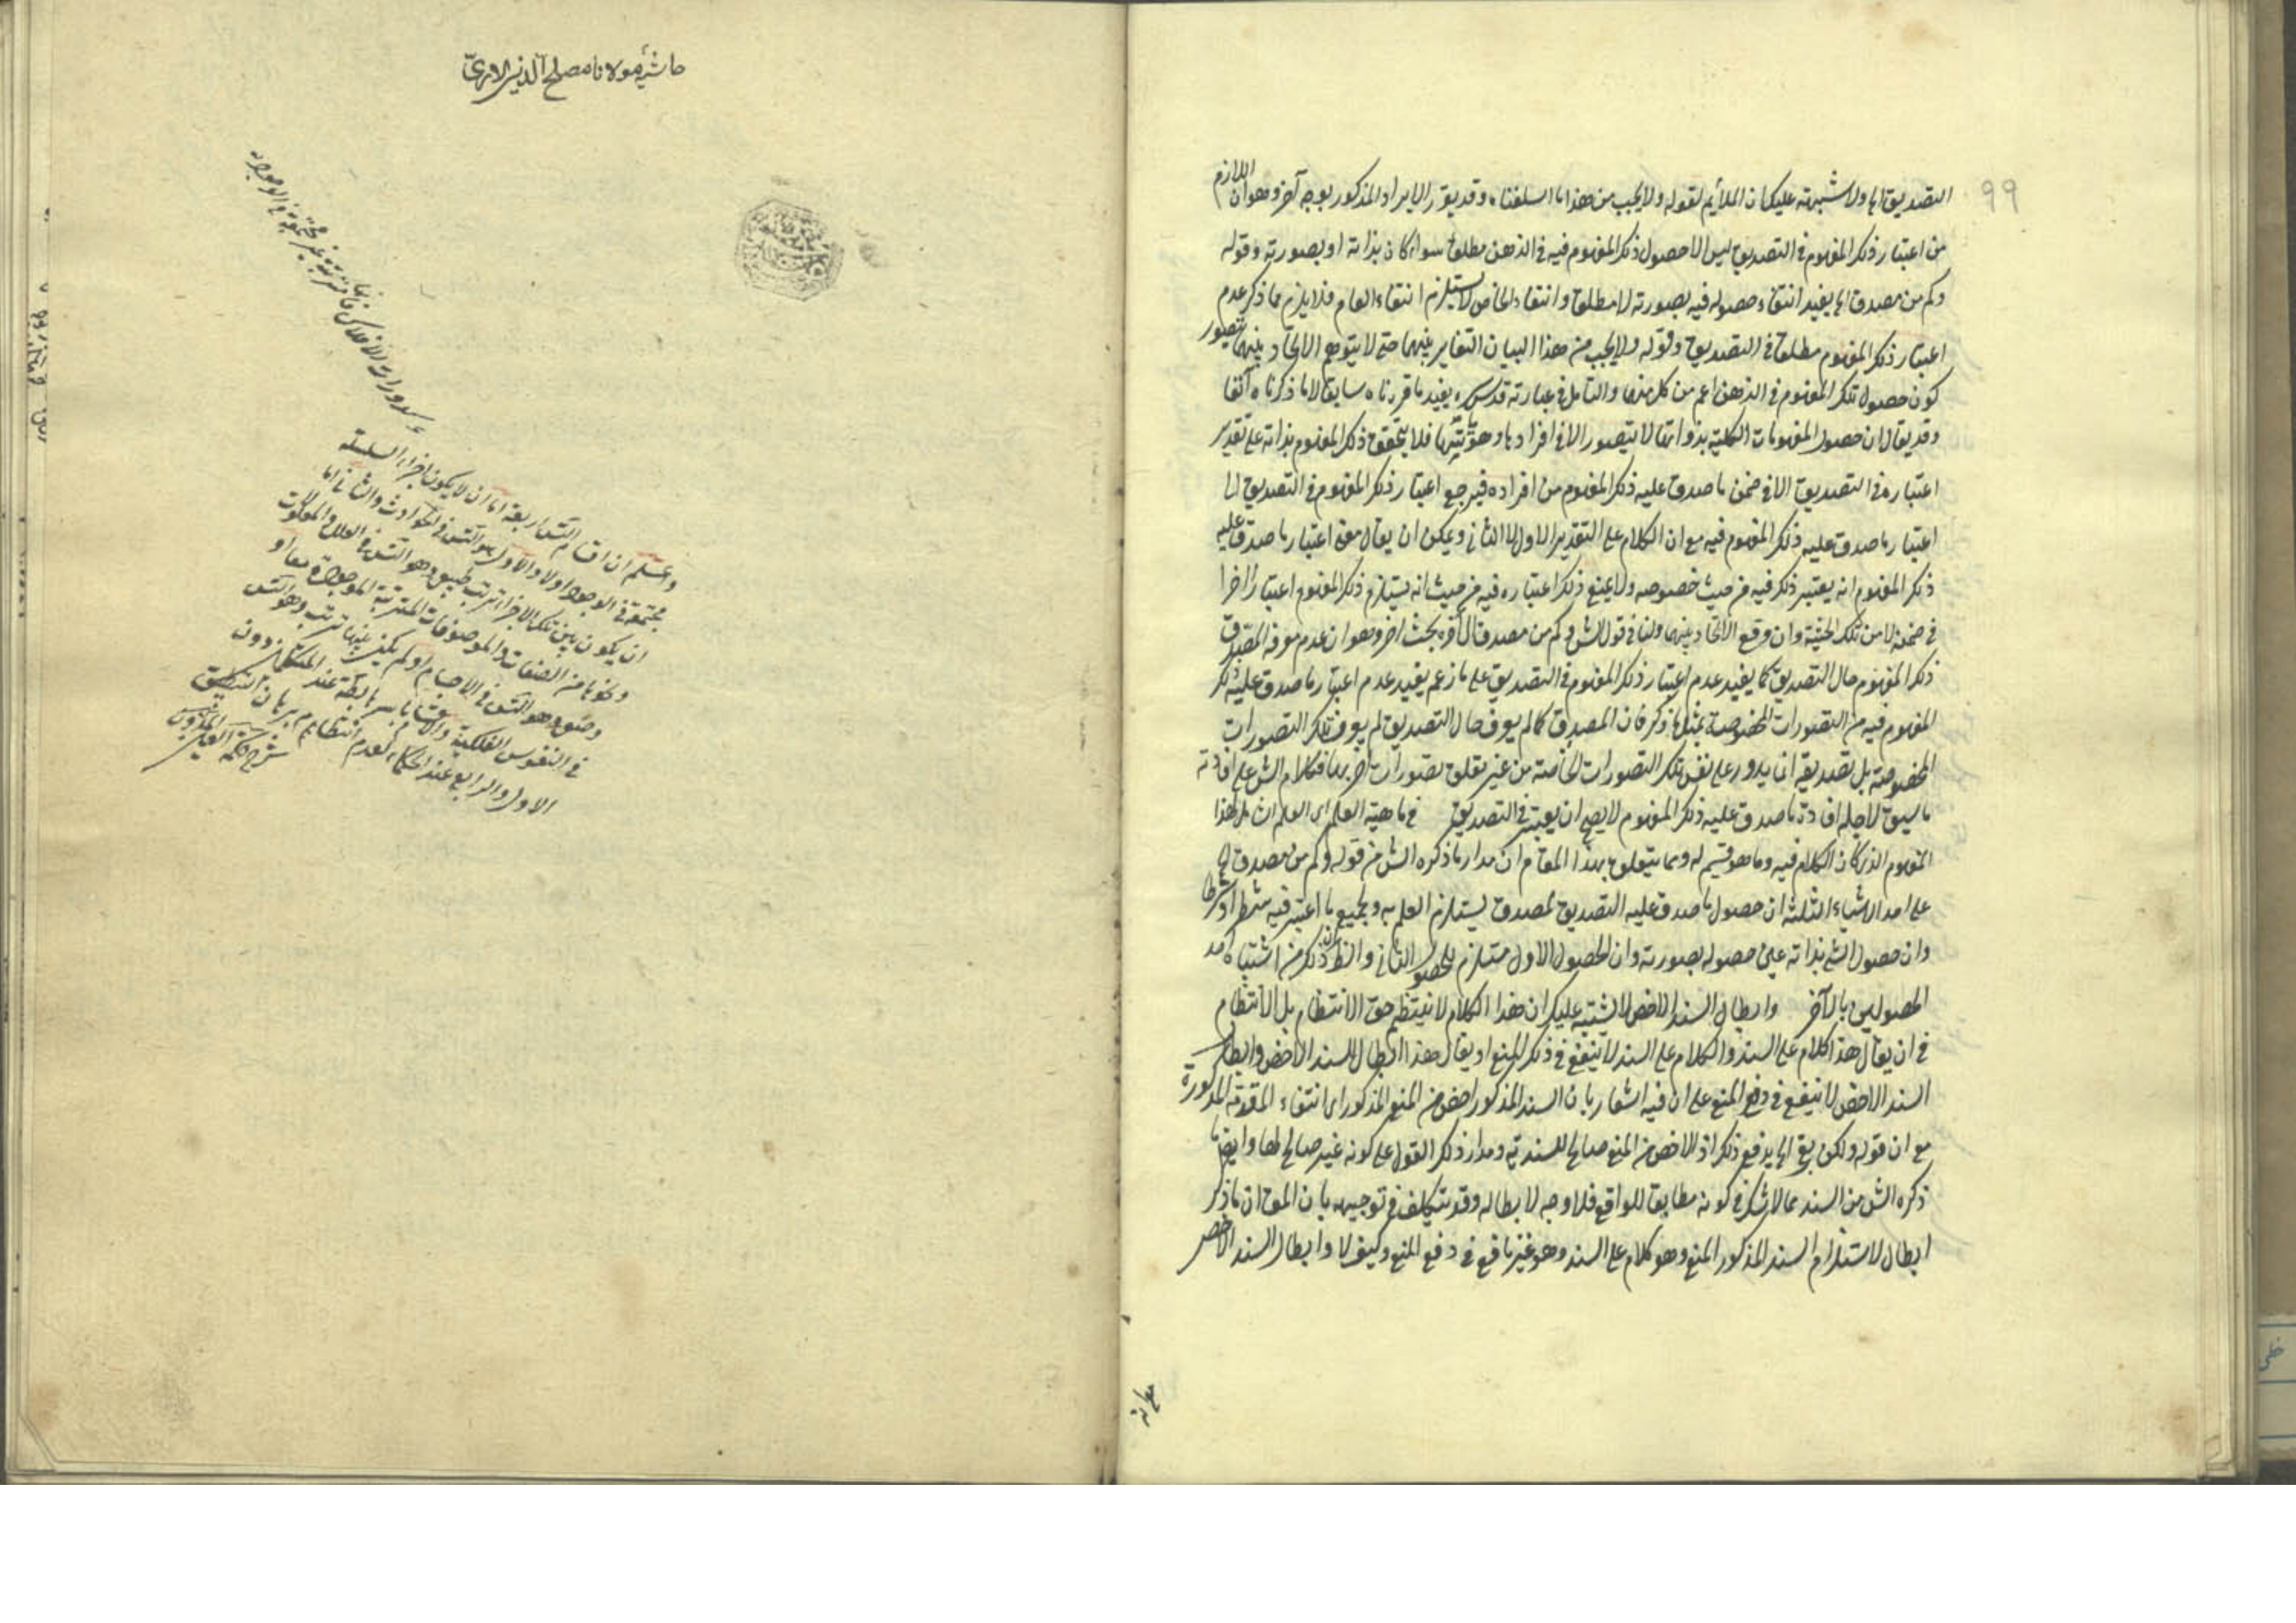 ٩٩
التصديق الخ ولا شبهة عليك ان الملايم لقوله ولا يجب من هذا ما اسلفناه وقد يقرر الايراد المذكور بوجه آخر وهو ان اللازم
من اعتبار ذلك المفهوم في التصديق ليس الا حصول ذلك المفهوم فيه في الذهن مطلقا سواء كان بذاته او بصورته وقوله
وكم من مصدق الخ يفيد انتفاء حصوله فيه بصورته لا مطلقا وانتفاء الخاص لا يستلزم انتفاء العام فلا يلزم مما ذكر عدم
اعتبار ذلك المفهوم مطلقا في التصديق وقوله ولا يجب من هذا البيان التغاير بينهما حتى لا يتوهم الاتحاد بينهما
كون حصول تلك المفهوم في الذهن اعم من كل منهما والتأمل في عبارته قدس سره يفيد ما قررناه سابقا لا ما ذكرناه آنفا
وقد يقال ان حصول المفهومات الكلية بذواتها لا يتصور الا في افرادها فلا يتحقق ذلك المفهوم بذاته على تقدير
اعتباره في التصديق الا في ضمن ما صدق عليه ذلك المفهوم من افراده فيرجع اعتبار ذلك المفهوم في التصديق الى
اعتبار ما صدق عليه ذلك المفهوم فيه مع ان الكلام على التقدير الاول لا الثاني ويمكن ان يقال معنى اعتبار ما صدق عليه
ذلك المفهوم انه يعتبر ذلك فيه من حيث خصوصه ولا يمنع ذلك اعتباره فيه من حيث انه يستلزم ذلك المفهوم اعتبارا آخرا
في ضمنه لا من تلك الحيثية وان وقع الاتحاد بينهما ولنا في قول الش وكم من مصدق الخ بحث آخر وهو ان عدم معرفة المصدق
ذلك المفهوم حال التصديق كما يفيد عدم اعتبار ذلك المفهوم في التصديق على ما زعم يفيد عدم اعتبار ما صدق عليه ذلك
المفهوم فيه من التصورات المخصوصة بمثل ما ذكر فان المصدق كما لم يعرف حال التصديق لم يعرف تلك التصورات
المخصوصة بل تصديقه انما يدور على نفس تلك التصورات الخاصة من غير تعلق تصورات اخر بها فكلام الش على افادته
ما سيق لاجله افادة ما صدق عليه ذلك المفهوم لا يصح ان يعتبر في التصديق في ماهية العلم اى العلم الشامل لهذا
المفهوم الذى كان الكلام فيه وما هو قسيم له ومما يتعلق بهذا المقام ان مدار ما ذكره الش من قوله وكم من مصدق الخ
على احد الاشياء الثلثة ان حصول ما صدق عليه التصديق لمصدق يستلزم العلم به وبجميع ما اعتبر فيه شطرا وشرطا
وان حصول الشئ بذاته عين حصوله بصورته وان الحصول الاول مستلزم للحصول الثاني والظ ان ذلك من اشتباه احد
الحصولين بالآخر وابطال السند الاخص لا يشتبه عليك ان هذا الكلام لا ينتظم حق الانتظام بل الانتظام
في ان يقال هذا كلام على السند والكلام على السند لا ينفع في ذلك المنع او يقال هذا ابطال للسند الاخص وابطال
السند الاخص لا ينفع في دفع المنع على ان فيه اشعار بان السند المذكور اخص من المنع المذكور اى انتفاء المقدمة المذكورة
مع ان قوله ولكن بقي الخ يدفع ذلك اذ الاخص من المنع صالح للسندية ومدار ذلك القول على كونه غير صالح لها وايضا
ذكره الش من السند مما لا شك في كونه مطابق للواقع فلا وجه لابطاله وقد يتكلف في توجيهه بان المق ان ما ذكر
ابطال لاستلزام السند المذكور المنع وهو كلام على السند وهو غير نافع في دفع المنع وكيف لا وابطال السند الاخص
حاشية مولانا مصلح الدين اللارى
واعلم ان اقسام التس اربعة اما ان لا يكون اجزاء السلسلة
مجتمعة في الوجود اولا والاول هو التس في الحوادث والثاني اما
ان يكون بين تلك الاجزاء ترتب طبيعى وهو التس في العلل والمعلولات
ونحوها من الصفات والموصوفات المترتبة الموجودة معا او
وضعى وهو التس في الاجسام او لم يكن بينها ترتب وهو التس
في النفوس الفلكية والاقسام باسرها باطلة عند المتكلمين دون
الاول والرابع عند الحكماء لعدم انتظام برهان التطبيق
شرح حكمة العين